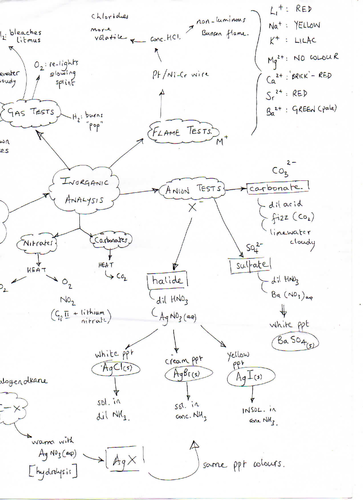 Cl₂: bleaches
litmus
O₂: re-lights
glowing
splint
H₂: burns
"pop"
GAS TESTS
Chlorides
more
volatile
conc. HCl.
non-luminous
Bunsen flame.
Pt/Ni-Cr wire
FLAME TESTS
M⁺
Li⁺ : RED
Na⁺ : YELLOW
K⁺ : LILAC
Mg²⁺ : NO COLOUR
Ca²⁺ : 'BRICK'-RED
Sr²⁺ : RED
Ba²⁺ : GREEN (pale)
INORGANIC
ANALYSIS
ANION TESTS
X⁻
CO₃²⁻
carbonate.
dil acid
fizz (CO₂)
limewater
cloudy
Nitrates
HEAT
O₂
O₂
NO₂
nitrate)
Carbonates
HEAT
CO₂
halide
dil HNO₃
AgNO₃(aq)
SO₄²⁻
sulfate
dil HNO₃
Ba(NO₃)₂aq
white ppt
BaSO₄(s)
white ppt
AgCl(s)
sol. in
dil NH₃.
cream ppt
AgBr(s)
sol. in
conc. NH₃
yellow
ppt
AgI(s)
INSOL. in
conc NH₃.
halogenoalkane
C-X
warm with
AgNO₃(aq)
[hydrolysis]
AgX
same ppt colours.